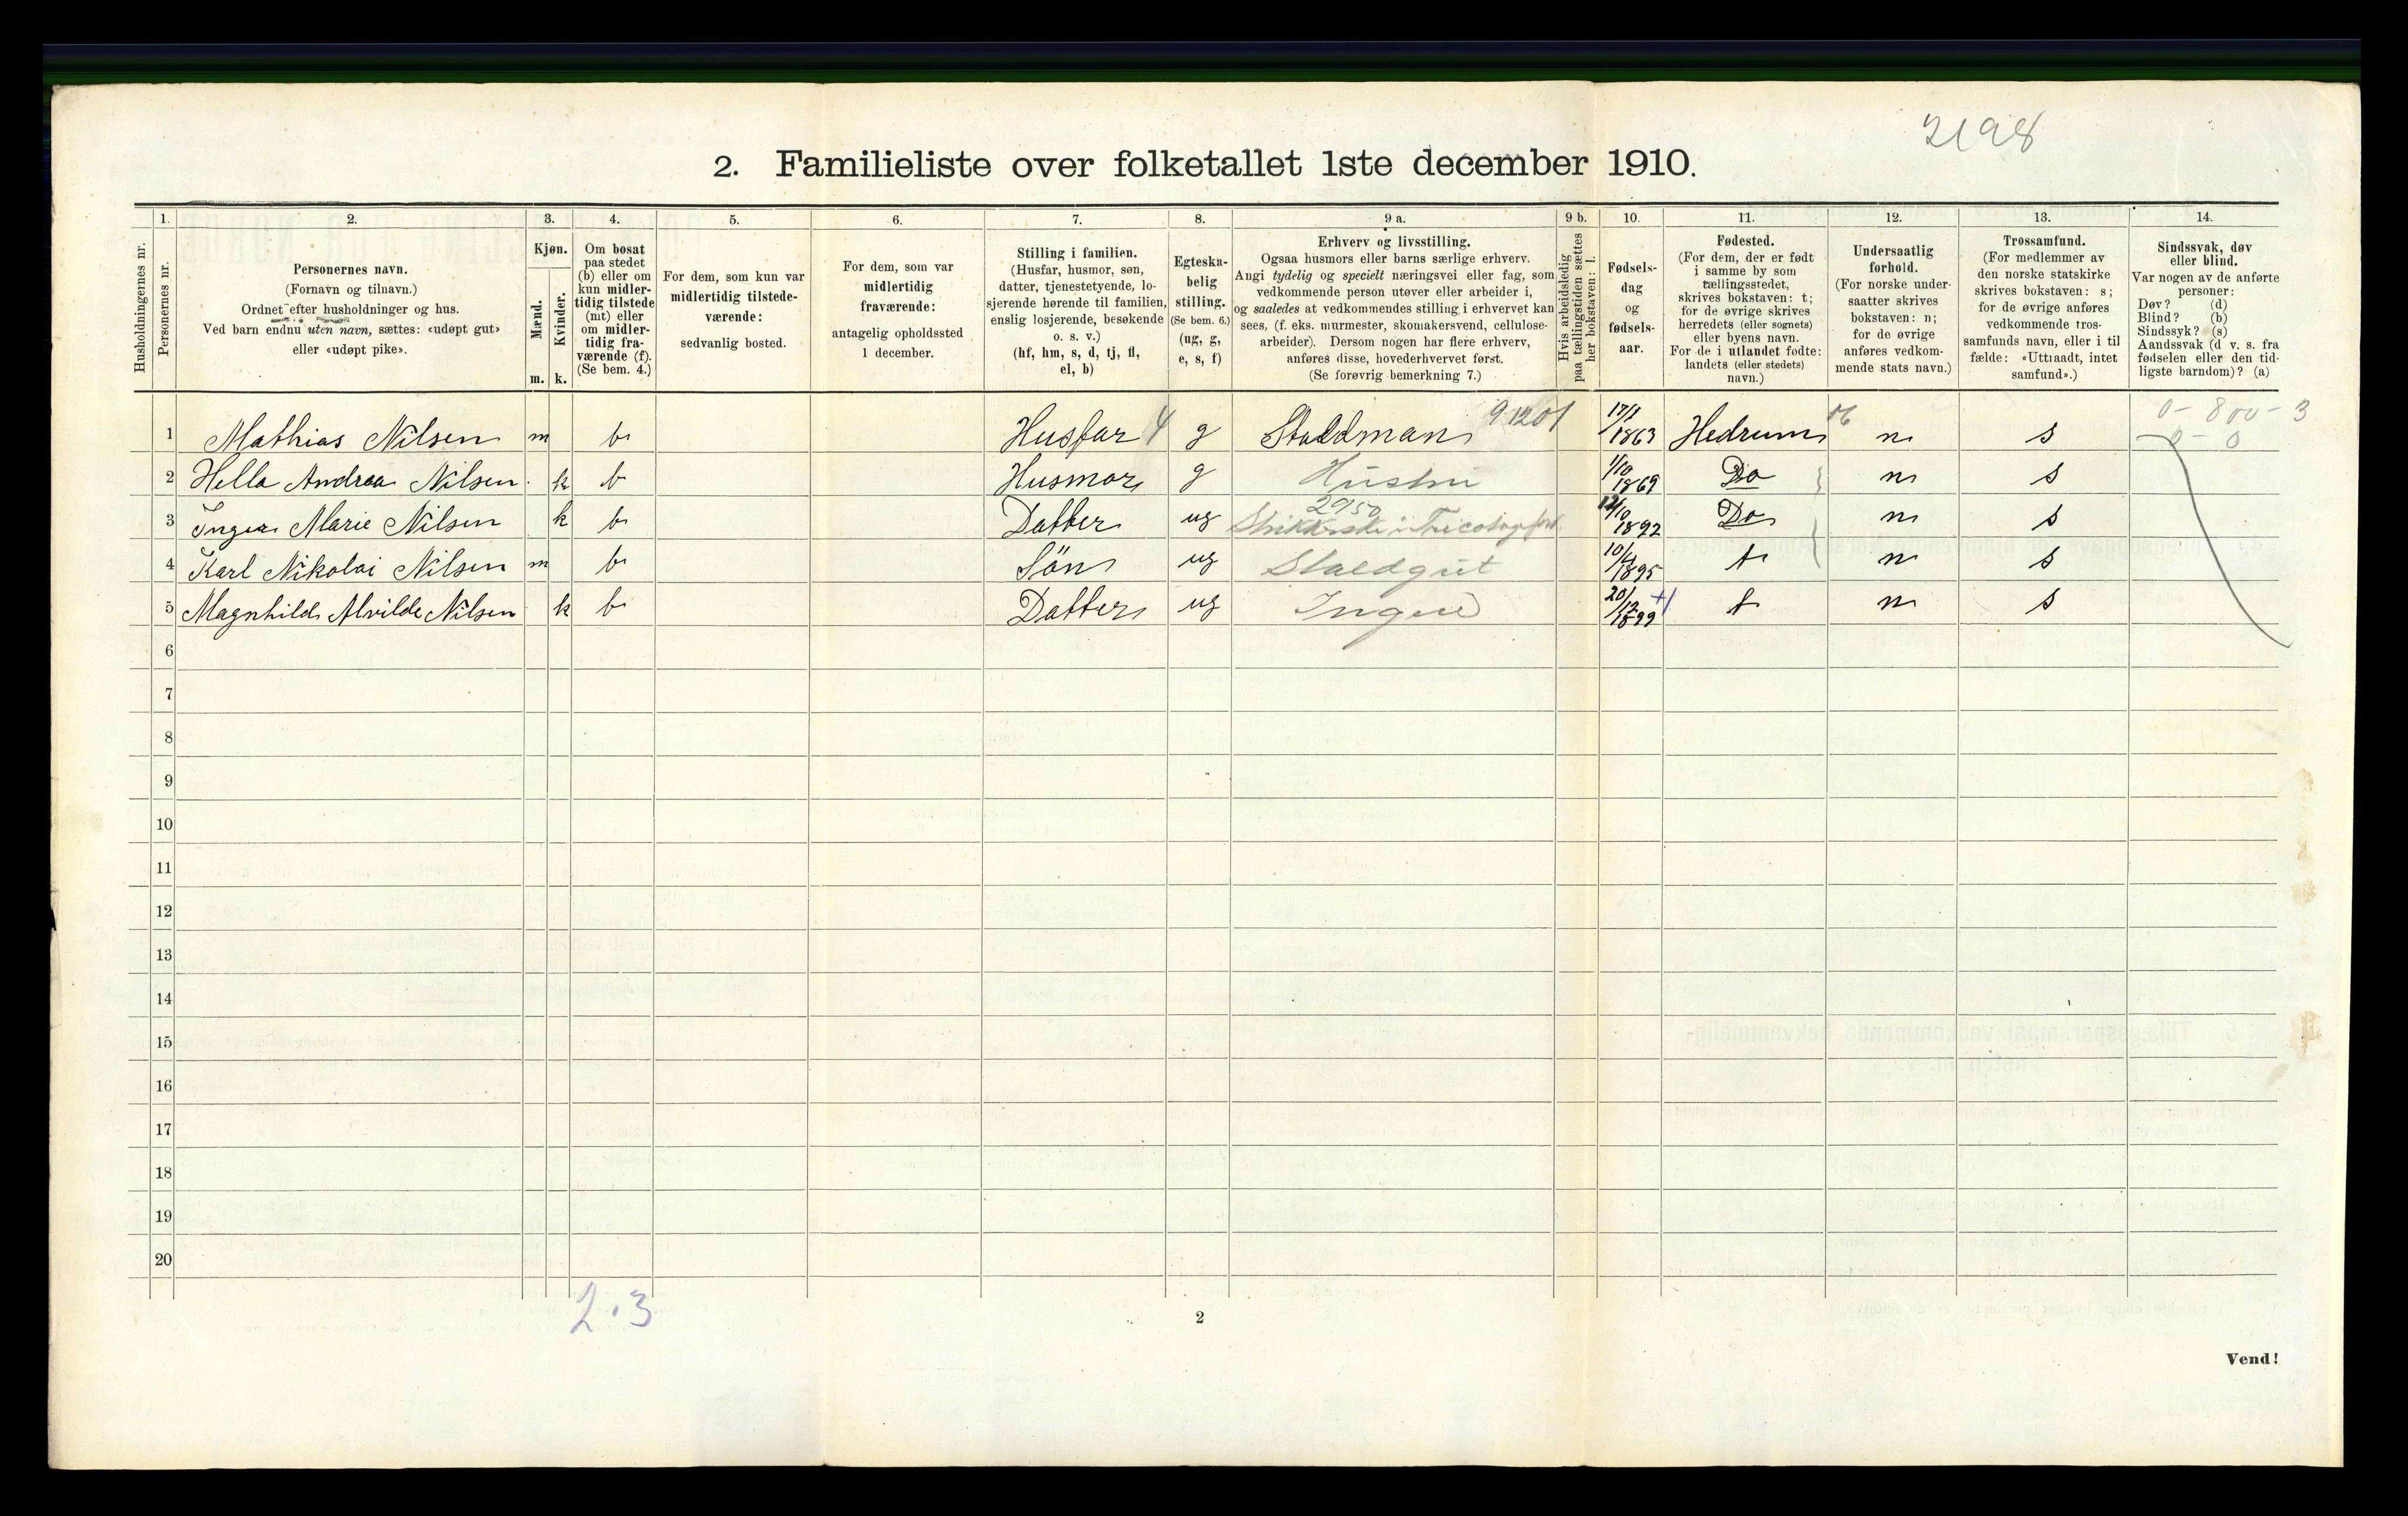 2198
2. Familieliste over folketallet 1ste december 1910.
Husholdningernes nr.
1.
Personernes nr.
2.
Personernes navn.
(Fornavn og tilnavn.)
Ordnet efter husholdninger og hus.
Ved barn endnu uten navn, sættes: «udøpt gut»
eller «udøpt pike».
3.
Kjøn.
Mænd.
Kvinder.
m. k.
4.
Om bosat
paa stedet
(b) eller om
kun midler-
tidig tilstede
(mt) eller
om midler-
tidig fra-
værende (f).
(Se bem. 4.)
5.
For dem, som kun var
midlertidig tilstede-
værende:
sedvanlig bosted.
6.
For dem, som var
midlertidig
fraværende:
antagelig opholdssted
1 december.
7.
Stilling i familien.
(Husfar, husmor, søn,
datter, tjenestetyende, lo-
sjerende hørende til familien,
enslig losjerende, besøkende
o. s. v.)
(hf, hm, s, d, tj, fl,
el, b)
8.
Egteska-
belig
stilling.
(Se bem. 6.)
(ug, g,
e, s, f)
9 a.
Erhverv og livsstilling.
Ogsaa husmors eller barns særlige erhverv.
Angi tydelig og specielt næringsvei eller fag, som
vedkommende person utøver eller arbeider i,
og saaledes at vedkommendes stilling i erhvervet kan
sees, (f. eks. murmester, skomakersvend, cellulose-
arbeider). Dersom nogen har flere erhverv,
anføres disse, hovederhvervet først.
(Se forøvrig bemerkning 7.)
9 b.
Hvis arbeidsledig
paa tællingstiden sættes
her bokstaven: l.
10.
Fødsels-
dag
og
fødsels-
aar.
11.
Fødested.
(For dem, der er født
i samme by som
tællingsstedet,
skrives bokstaven: t;
for de øvrige skrives
herredets (eller sognets)
eller byens navn.
For de i utlandet fødte:
landets (eller stedets)
navn.)
12.
Undersaatlig
forhold.
(For norske under-
saatter skrives
bokstaven: n;
for de øvrige
anføres vedkom-
mende stats navn.)
13.
Trossamfund.
(For medlemmer av
den norske statskirke
skrives bokstaven: s;
for de øvrige anføres
vedkommende tros-
samfunds navn, eller i til
fælde: «Uttraadt, intet
samfund».)
14.
Sindssvak, døv
eller blind.
Var nogen av de anførte
personer:
Døv? (d)
Blind? (b)
Sindssyk? (s)
Aandssvak (d v. s. fra
fødselen eller den tid-
ligste barndom)? (a)
1 Mathias Nilsen m b Husfar 4 g Staldmann 91201 17/1 1863 Hedrum 06 n s 0-800-3
0-0
2 Hella Andrea Nilsen k b Husmor g Hustru 1/10 1869 Do n s
2950
3 Inger Marie Nilsen k b Datter ug Strikkerske i Tricotagefabr. 12/10 1892 Do n s
4 Karl Nikolai Nilsen m b Sön ug Staldgut 10/4 1895 t n s
5 Magnhild Alvilde Nilsen k b Datter ug Ingen 20/12 1899 t n s
6
7
8
9
10
11
12
13
14
15
16
17
18
19
20
2.3
2
Vend!